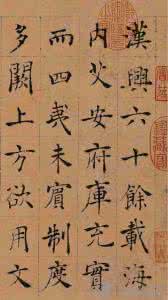 漢興六十餘載海
內艾安府庫充實
而四夷未賓制度
多闕上方欲用文